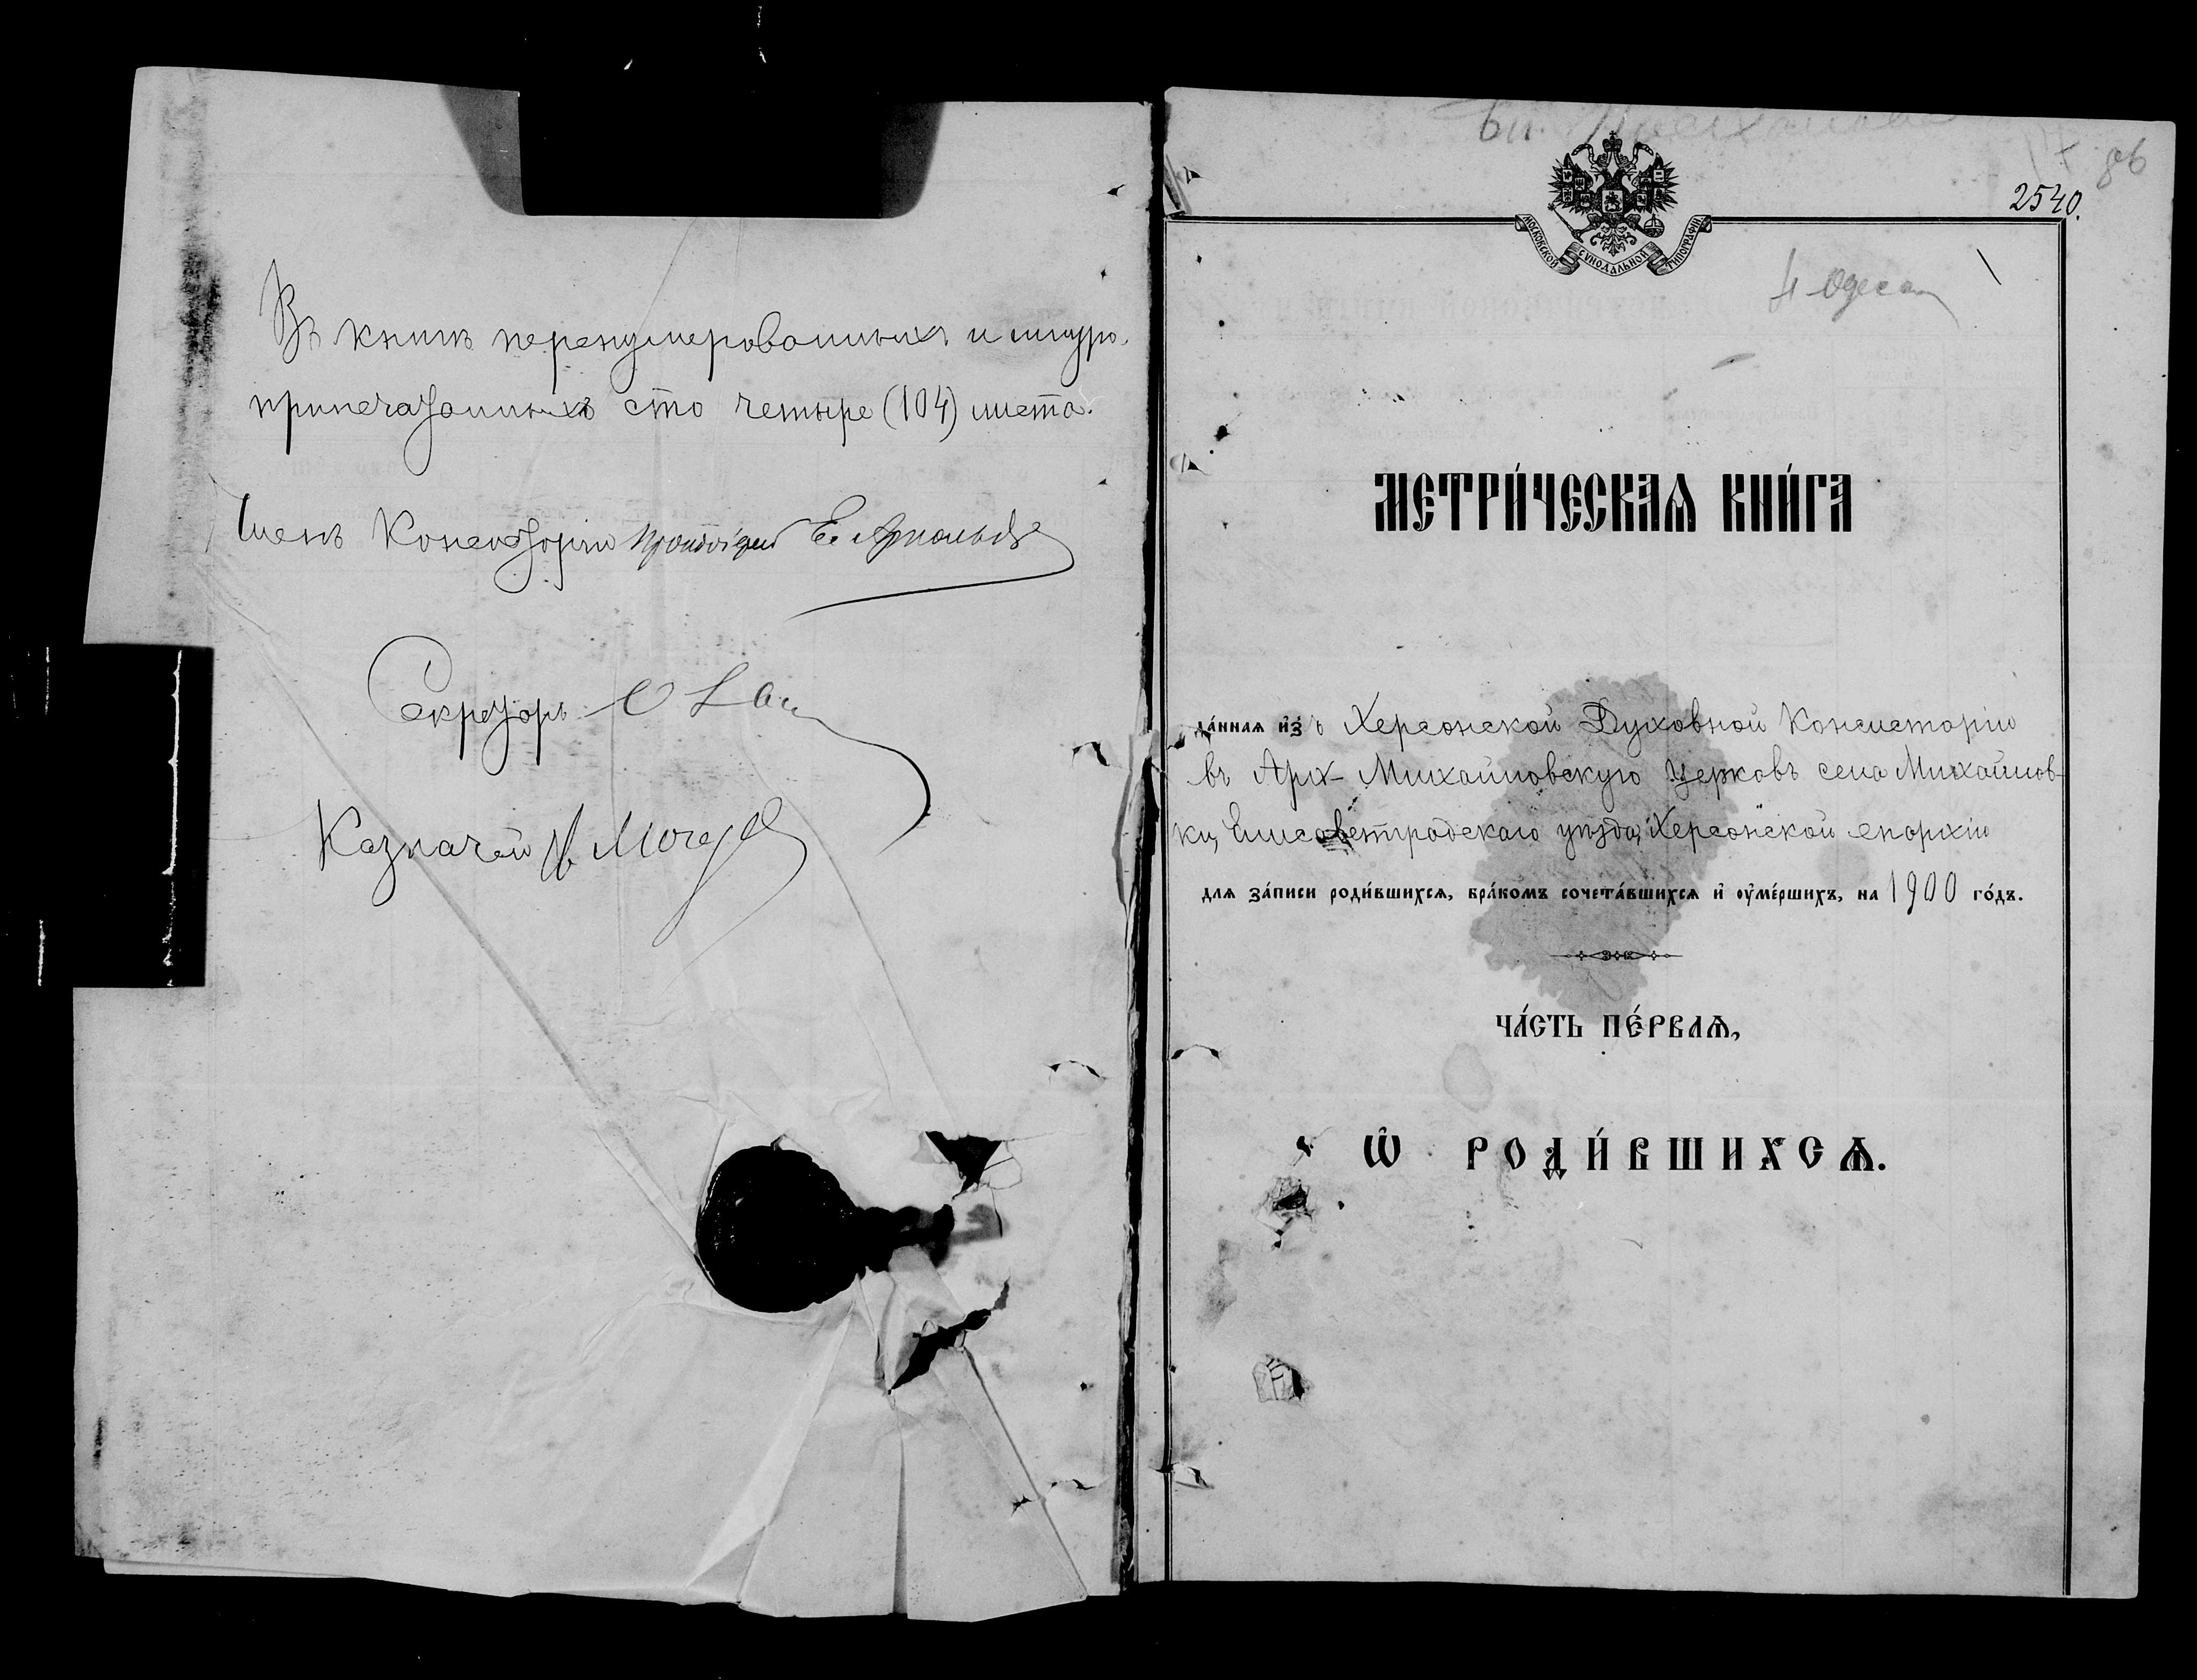 Въ книгѣ перенумерованныхъ и шнуро-
припечатанныхъ сто четыре (104) листа.
Членъ Консисторіи Протоіерей
Секретарь
Казначей
2540.
86
МОСКОВСКОЙ СѴНОДАЛЬНОЙ ТИПОГРАФІИ
МЕТРИ́ЧЕСКАѦ КНИ́ГА
да́ннаѧ и҆зъ Херсонской Духовной Консисторіи
въ Арх-Михайловскую Церковь села Михайлов-
ки, Елисаветградскаго уѣзда, Херсонской епархіи
для за́писи роди́вшихсѧ, бра́комъ сочета́вшихсѧ и҆ оу҆ме́ршихъ, на 1900 го́дъ.
ЧА́СТЬ ПЕ́РВАѦ,
Ѡ҆ РОДИ́ВШИХСѦ.